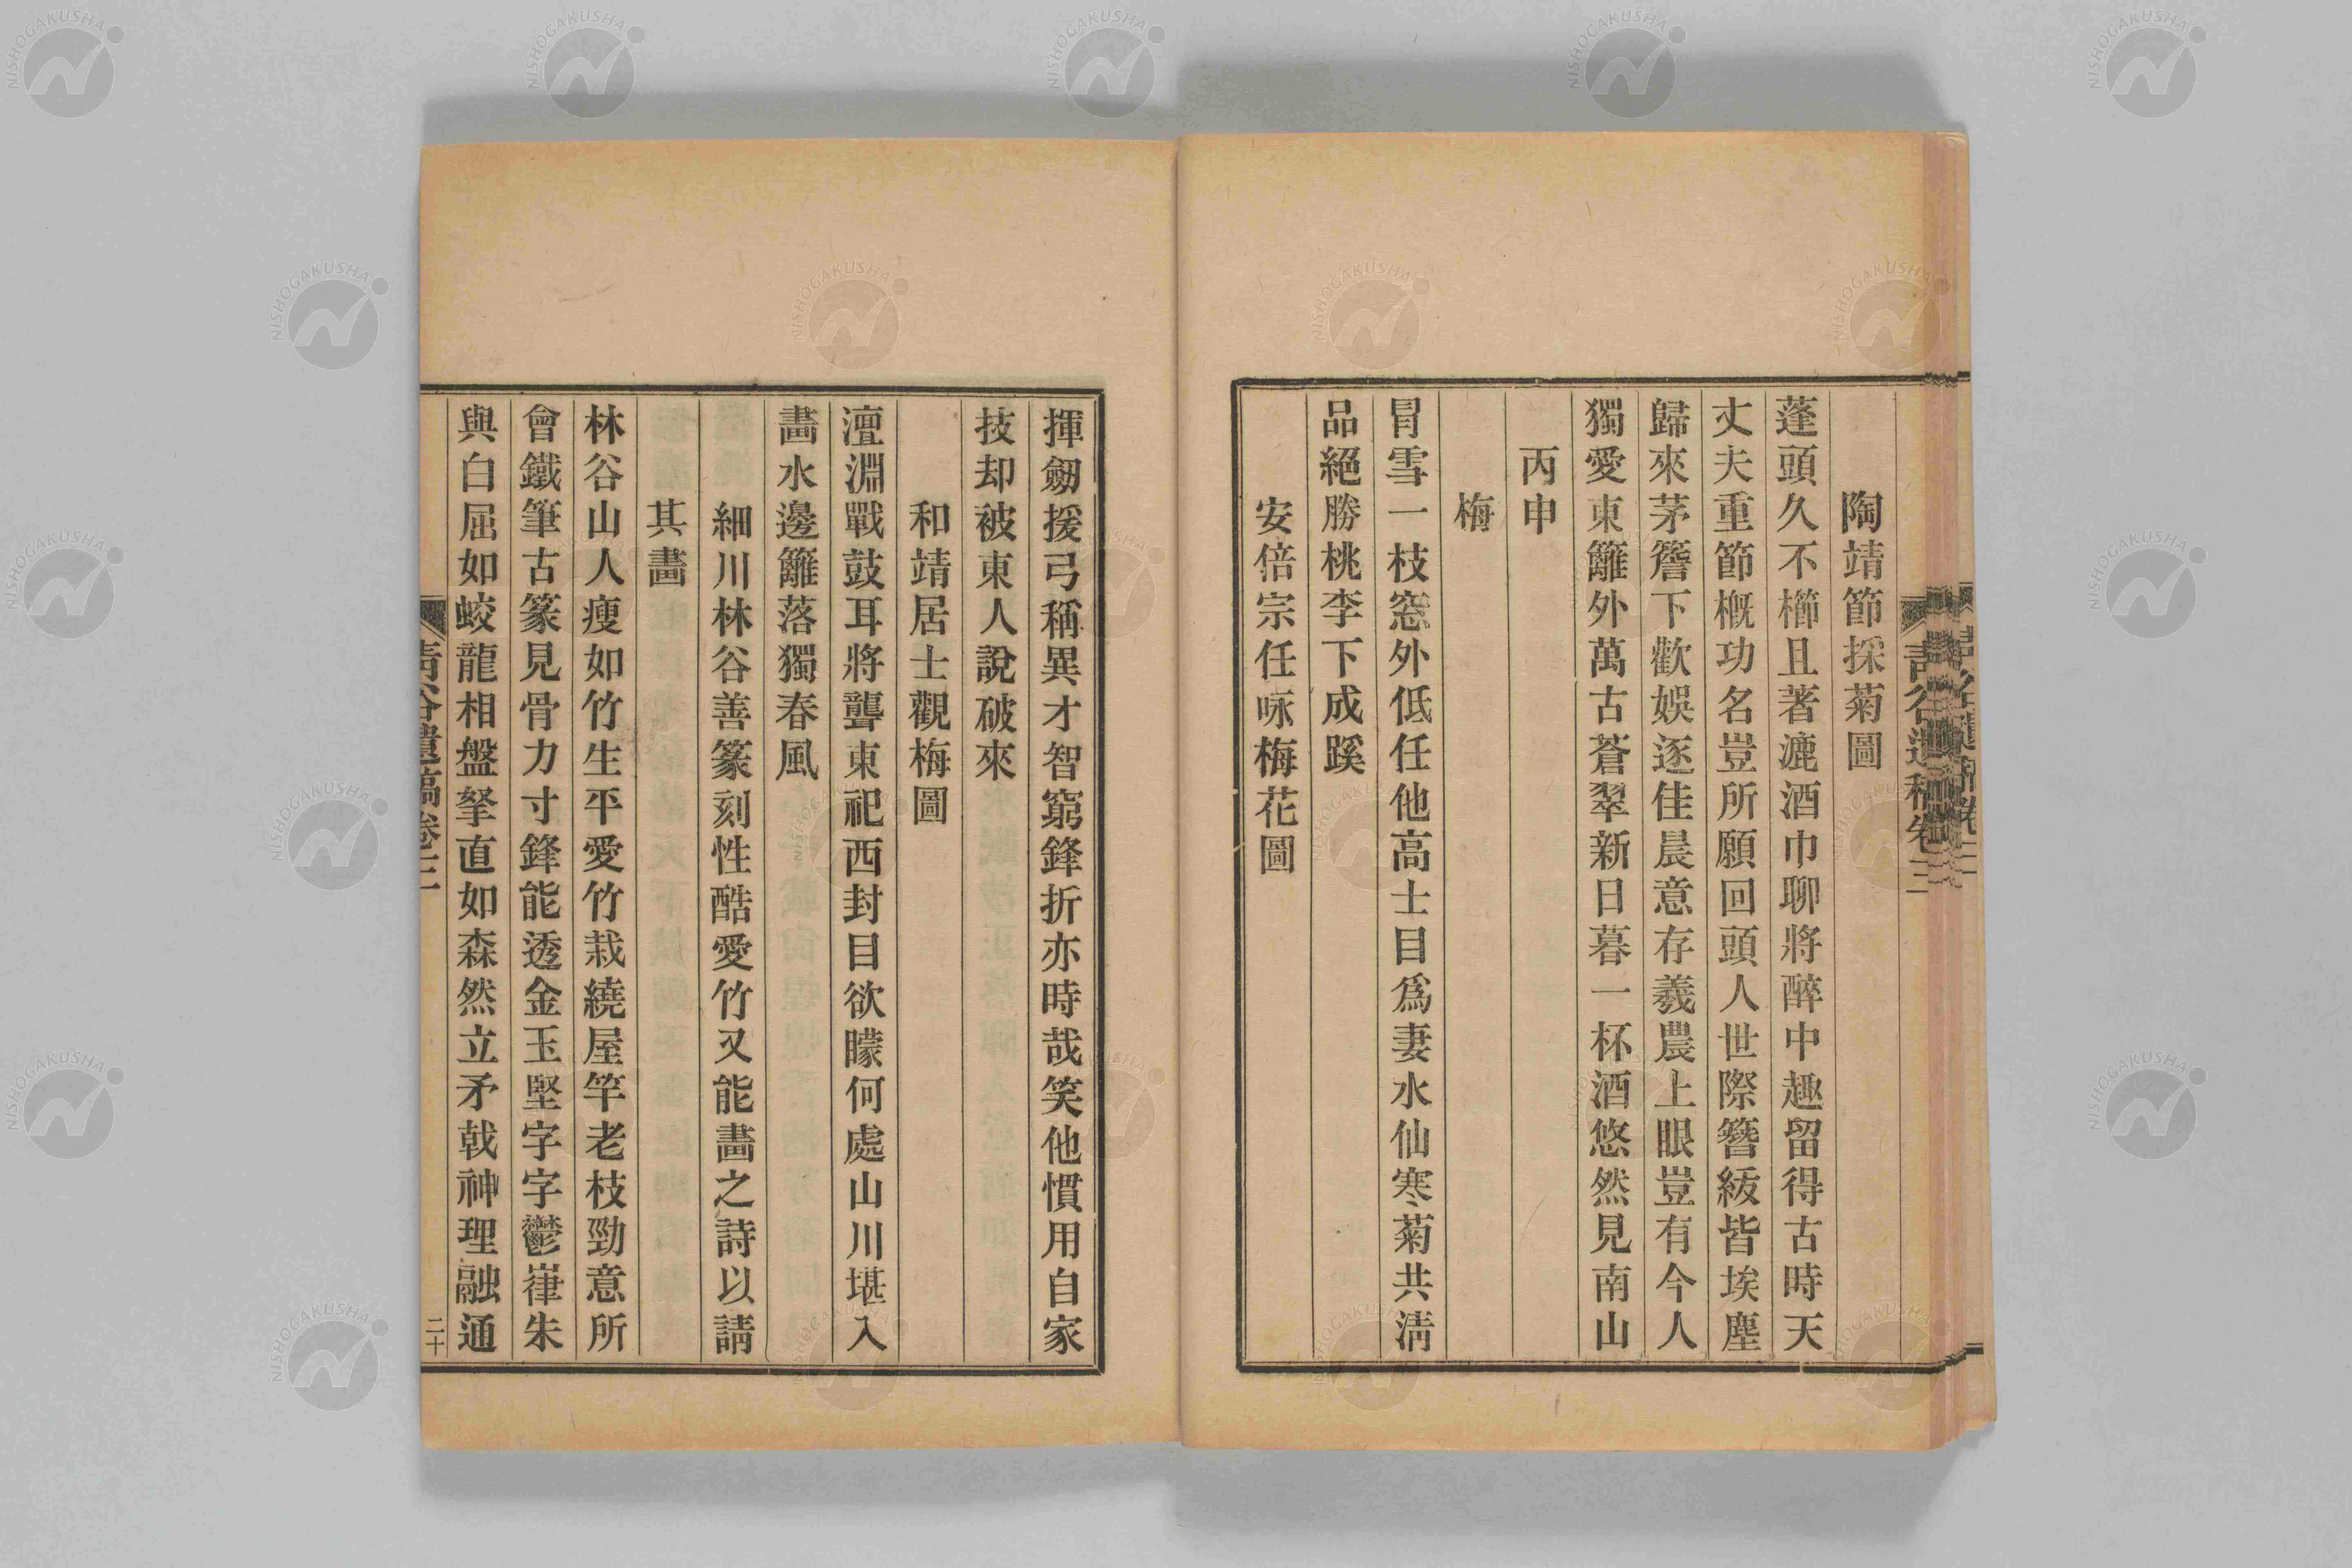 陶靖節採菊圖
蓬頭久不櫛且著漉酒巾聊將醉中趣留得古時天
丈夫重節概功名豈所願回頭人世際簪紱皆埃塵
歸來茅簷下歡娛逐佳晨意存羲農上眼豈有今人
獨愛東籬外萬古蒼翠新日暮一杯酒悠然見南山
丙申
梅
冒雪一枝窓外低任他高士目爲妻水仙寒菊共淸
品絕勝桃李下成蹊
安倍宗任咏梅花圖
揮劒援弓稱異才智窮鋒折亦時哉笑他慣用自家
技却被東人說破來
和靖居士觀梅圖
澶淵戰鼓耳將聾東祀西封目欲矇何處山川堪入
畵水邊籬落獨春風
細川林谷善篆刻性酷愛竹又能畵之詩以請
其畵
林谷山人瘦如竹生平愛竹栽繞屋竿老枝勁意所
會鐵筆古篆見骨力寸鋒能透金玉堅字字鬱嵂朱
與白屈如蛟龍相盤拏直如森然立矛戟神理融通
靑谷遺稿卷二
二十
NISHOGAKUSHA